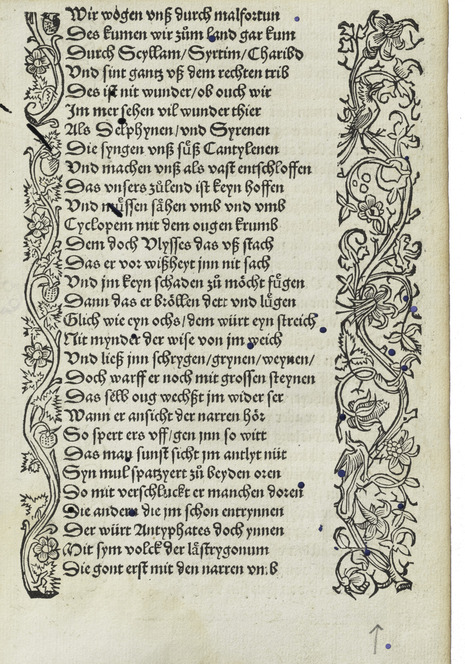 Wir wogen vnß durch malfortun
Des kumen wir zům land gar kum
Durch Scyllam/Syrtim/Charibd
Vnd sint gantz vß dem rechten trib
Des ist nit wunder/ob ouch wir
Jm mer sehen vil wunder thier
Als Delphynen/vnd Syrenen
Die syngen vnß sůß Cantylenen
Vnd machen vnß als vast entschloffen
Das vnsers zůlend ist keyn hoffen
Vnd můssen sähen vmb vnd vmb
Cyclopem mit dem ougen krumb
Dem doch Vlysses das vß stach
Das er vor wißheyt jnn nit sach
Vnd jm keyn schaden zů möcht fůgen
Dann das er bröllen dett vnd lůgen
Glich wie eyn ochs/dem würt eyn streich
Nit mynder der wise von jm weich
Vnd ließ jnn schrygen/grynen/weynen/
Doch warff er noch mit grossen steynen
Das selb oug wechßt jm wider ser
Wann er ansicht der narren hör
So spert ers vff/gen jnn so witt
Das man sunst sicht jm antlyt nüt
Syn mul spatzyert zů beyden oren
So mit verschluckt er manchen doren
Die andern die jm schon entrynnen
Der würt Antyphates doch ynnen
Mit sym volck der lästrygonum
Die gont erst mit den narren vmb